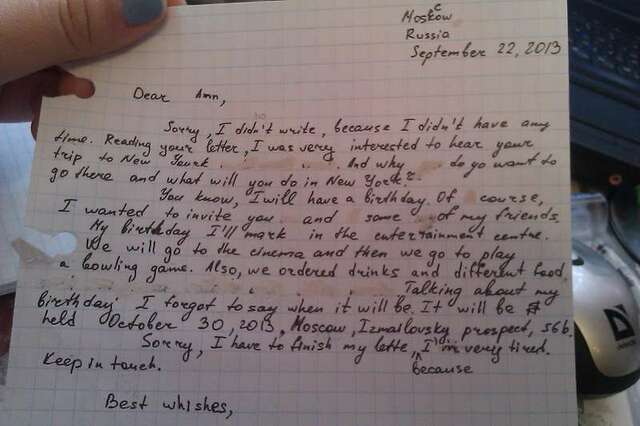 Moskow
c
Russia
September 22, 2013
Dear Ann,
Sorry, I didn't write, because I didn't have any
time. Reading your letter, I was very interested to hear your
trip to New Yourk. And why do go want to
go there and what will you do in New York?
You know, I will have a birthday. Of course,
I wanted to invite you and some of my friends.
My birthday I'll mark in the entertainment centre.
We will go to the cinema and then we go to play
a bowling game. Also, we ordered drinks and different food.
Talking about my
birthday I forgot to say when it will be. It will be
held October 30, 2013, Moscow, Izmailovsky prospect, 56b.
Sorry, I have to finish my lette, I'm very tired.
Keep in touch.
because
Best whishes,